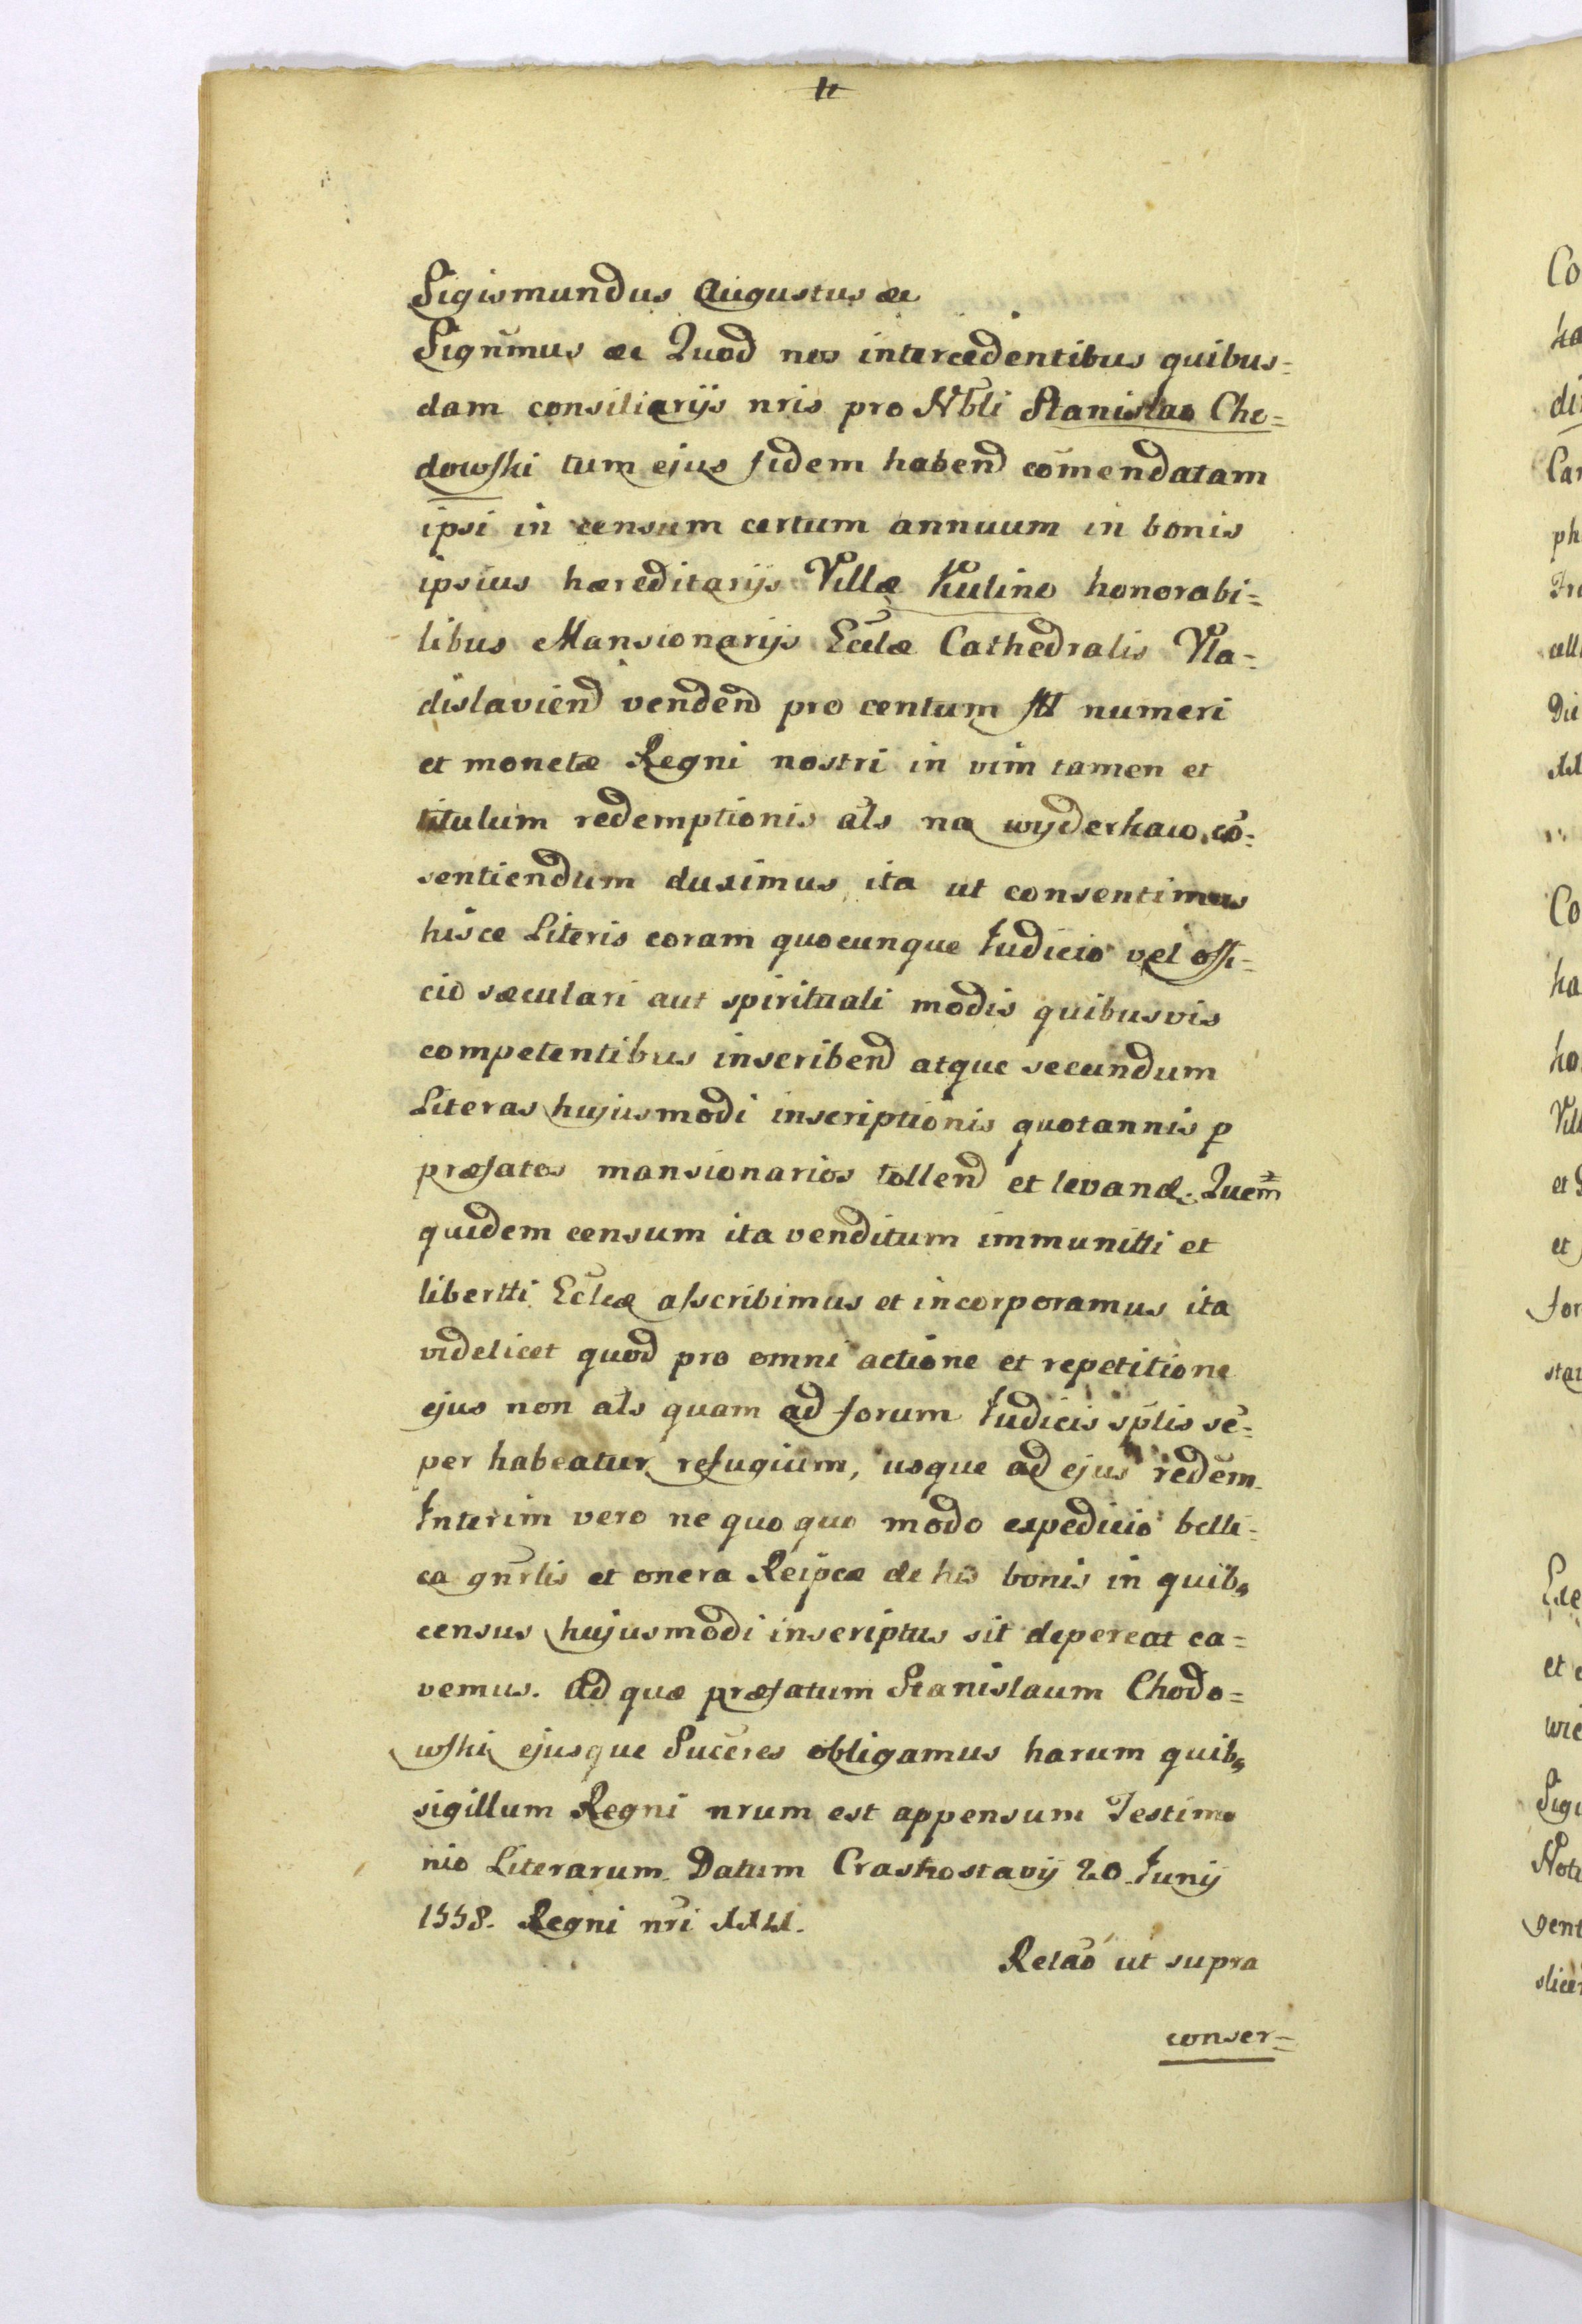 Sigismundus Augustus æc
Signūmus æc Quod nos intercedentibus quibus=
dam consiliarijs nris pro Nbli Stanislao Cho=
dowski tum ejus fidem habend cōmendatam
ipsi in censum certum annuum in bonis
ipsius hæreditarijs Villæ Kulino honorabi=
libus Mansionarijs Eccłæ Cathedralis Vla=
dislaviend vendend pro centum numeri
et monetæ Regni nostri in vim tamen et
titulum redemptionis als na wyderkaw cō=
sentiendum duximus, ita ut consentimus
hisce Literis coram quocunque Iudicio vel offi=
cio sæculari aut spirituali modis quibusvis
competentibus inscribend atque secundum
Literas hujusmodi inscriptionis quotannis p
præfatos mansionarios tollend et levand. Quem
quidem censum ita venditum immunitti et
libertti Ecłeæ asscribimus et incorporamus ita
videlicet quod pro omni actione et repetitione
ejus non als quam ad forum Iudicis splis sē=
per habeatur refugium, usque ad ejus redēm.
Interim vero ne quo quo modo expedicio belli=
ca gnrlis et onera Reipcæ de his bonis in quib9
census hujusmodi inscriptus sit depereat ca=
vemus. Ad quæ præfatum Stanislaum Chodo=
wski ejusque Succres obligamus harum quib9
sigillum Regni nrum est appensum Testimo
nio Literarum. Datum Crasnostavij 20 Iunij
1558. Regni nri
Relāo ut supra
conser=
Co
ha
Car
ph
Co
ha
et
et
for
Sigi
gent